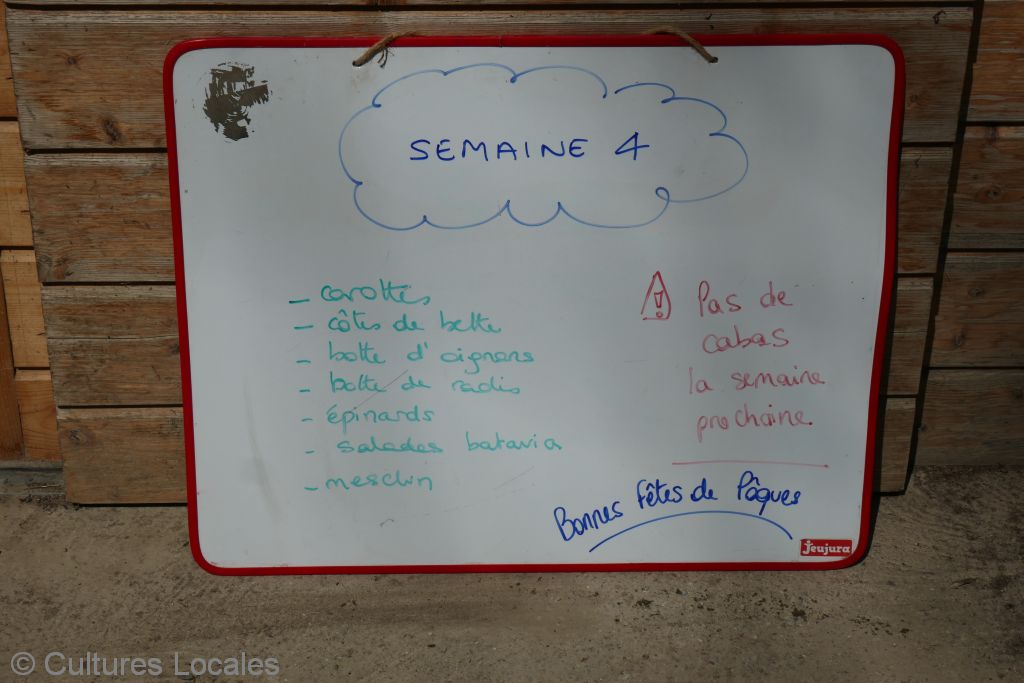 SEMAINE 4
- carottes
- côtes de bette
- botte d'oignons
- botte de radis
- épinards
- salades batavia
- mesclun
! Pas de
cabas
la semaine
prochaine.
Bonnes fêtes de Pâques
Jeujura
© Cultures Locales